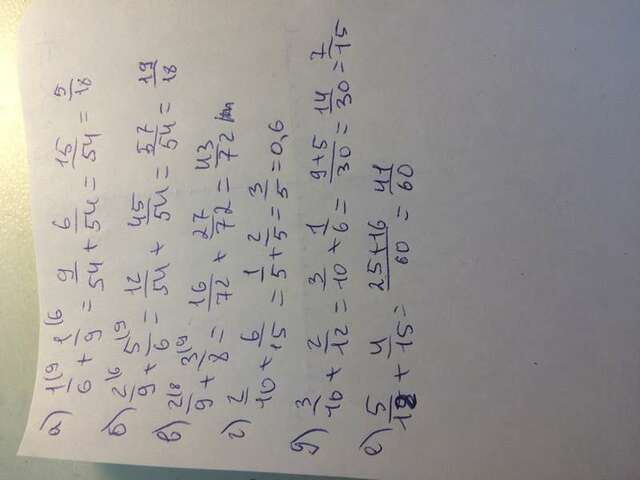 а) 1/6 (9 + 1/9 (6 = 9/54 + 6/54 = 15/54 = 5/18
б) 2/9 (6 + 5/6 (9 = 12/54 + 45/54 = 57/54 = 19/18
в) 2/9 (8 + 3/8 (9 = 16/72 + 27/72 = 43/72
г) 2/10 + 6/15 = 1/5 + 2/5 = 3/5 = 0,6
д) 3/10 + 2/12 = 3/10 + 1/6 = 9+5/30 = 14/30 = 7/15
е) 5/12 + 4/15 = 25+16/60 = 41/60